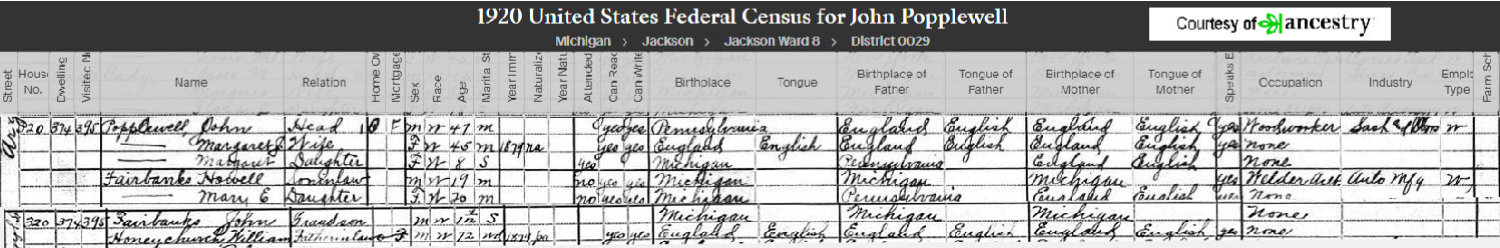 1920 United States Federal Census for John Popplewell
Courtesy of ancestry
Michigan > Jackson > Jackson Ward 8 > District 0029
Street House No. Dwelling Visited N Name Relation Home Ow Mortgage Sex Race Age Marital St Year Imm Naturaliz Year Natu Attended Can Read Can Write Birthplace Tongue Birthplace of Father Tongue of Father Birthplace of Mother Tongue of Mother Speaks E Occupation Industry Emplo Type Farm Sch
320 374 395 Popplewell, John Head 1 O F M W 47 M Yes yes Pennsylvania England English England English Yes Woodworker Sash & Doors W
— Margaret J Wife F W 45 M 1879 na Yes yes England English England English England English yes None
— Margaret Daughter F W 8 S Yes Michigan Pennsylvania England English None
Fairbanks Howell Soninlaw M W 19 M no yes yes Michigan Michigan Michigan yes Welder Auto Mfg W
— Mary E Daughter F W 20 M no yes yes Michigan Pennsylvania England English None
320 374 395 Fairbanks John Grandson M W S Michigan Michigan Michigan None
Honeychurch, William Fatherinlaw M W 72 yes yes England English England English England English yes None